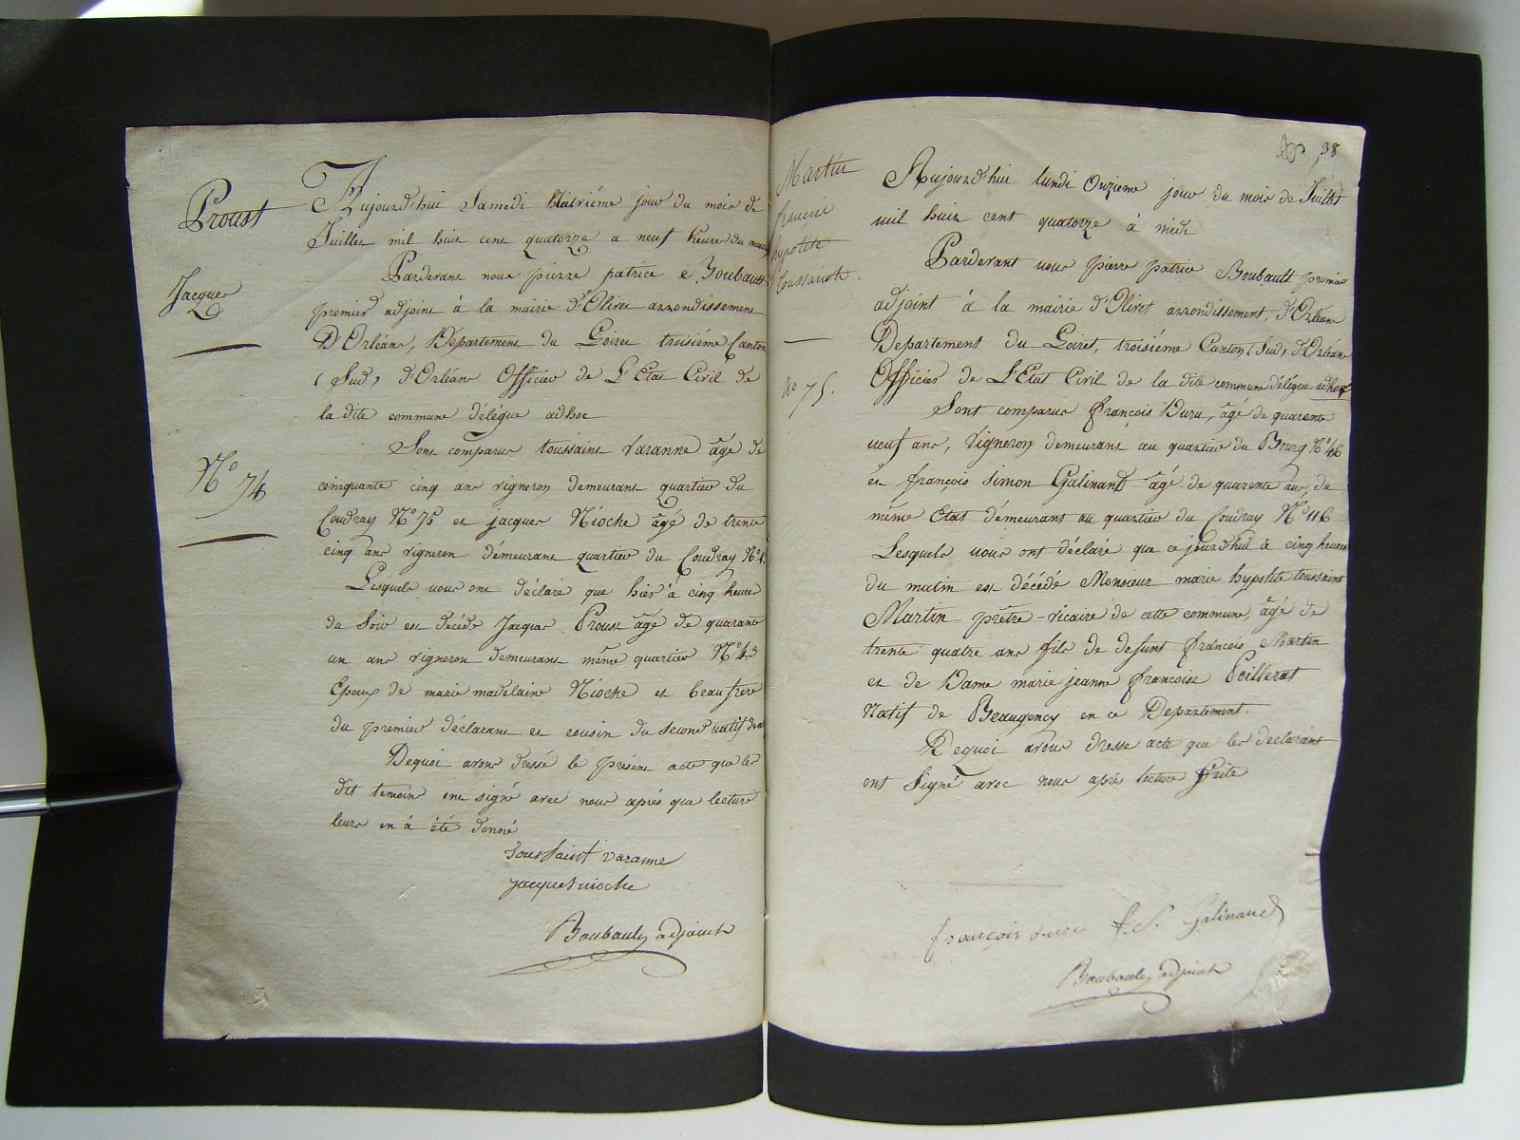 Proust
Jacques
N° 74
Aujourd'hui Samedi jour du mois de
Juillet mil huit cent quatorze a neuf heure du
Pardevant nous pierre patrice Boubault
premier adjoint à la mairie d'Olivet arrondissement
D'Orléans, Departement du Loiret troisiéme Canton
(Sud) d'Orléans Officier de L'Etat Civil de
la dite commune délégué adhoc
Sont comparus toussaint varanne âgé de
cinquante cinq ans vigneron demeurant quartier du
Coudray N° 75 et jacques Nioche âgé de trente
cinq ans vigneron démeurant quartier du Coudray N°
Lesquels nous ont déclaré que hier à cinq heure
du Soir est decédé Jacques Proust âgé de quarante
un ans vigneron demeurant même quartier N°
Epoux de marie madelaine Nioche et beau frere
du premier déclarant et cousin du second natif de
Dequoi avons dréssé le présent acte que les
dit temoin ont signé avec nous aprés que lecture
leurs en à été donné
toussaint varanne
jacques nioche
Boubault adjoint
38
Martin
marie
hypolite
toussaint
N° 75.
Aujourd'hui lundi Onzieme jour du mois de Juillet
mil huit cent quatorze à midi
Pardevant nous pierre patrice Boubault premier
adjoint à la mairie d'Olivet arrondissement d'Orléans
Departement du Loiret, troisiéme Canton (Sud) d'Orléans
Officier de L'Etat Civil de la dite commune délégué adhoc
Sont comparus françois Duru, âgé de quarente
neuf ans, Vigneron demeurant au quartier du Bourg N° 46
et françois Simon Galinand âgé de quarente ans, du
même Etat démeurant au quartier du Coudray N° 116
Lesquels nous ont déclaré que ce jourd'hui à cinq heures
du matin est décédé Monsieur marie hypolite toussaint
Martin prêtre-vicaire de cette commune, âgé de
trente quatre ans fils de defunt françois Martin
et de Dame marie jeanne françoise Peillerat
Natif de Beaugency en ce Departement.
Dequoi avons dressé acte que les declarant
ont Signé avec nous aprés lecture faite
françois duru f. S. Galinand
Boubault adjoint